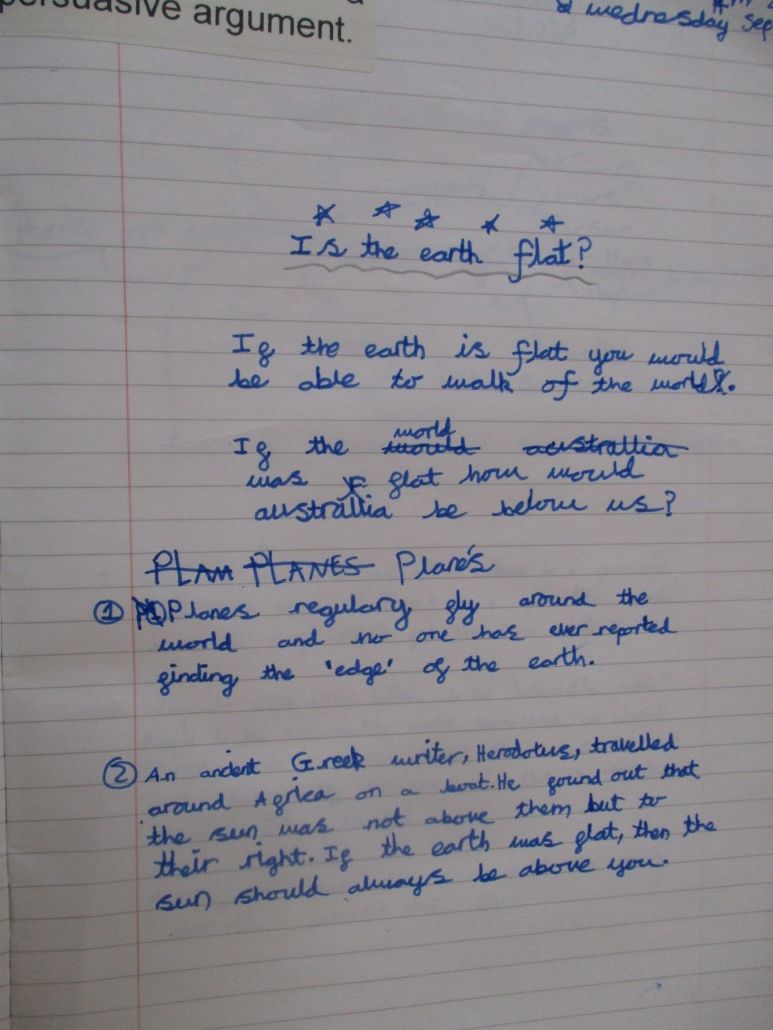 persuasive argument.
wednesday Sep
Is the earth flat?
If the earth is flat you would
be able to walk of the world.
If the world
was flat how would
australlia be below us?
PLAM PLANES Planes
① Planes regulary fly around the
world and no one has ever reported
finding the 'edge' of the earth.
② An ancient Greek writer, Herodotus, travelled
around Africa on a boat. He found out that
the sun was not above them but to
their right. If the earth was flat, then the
sun should always be above you.